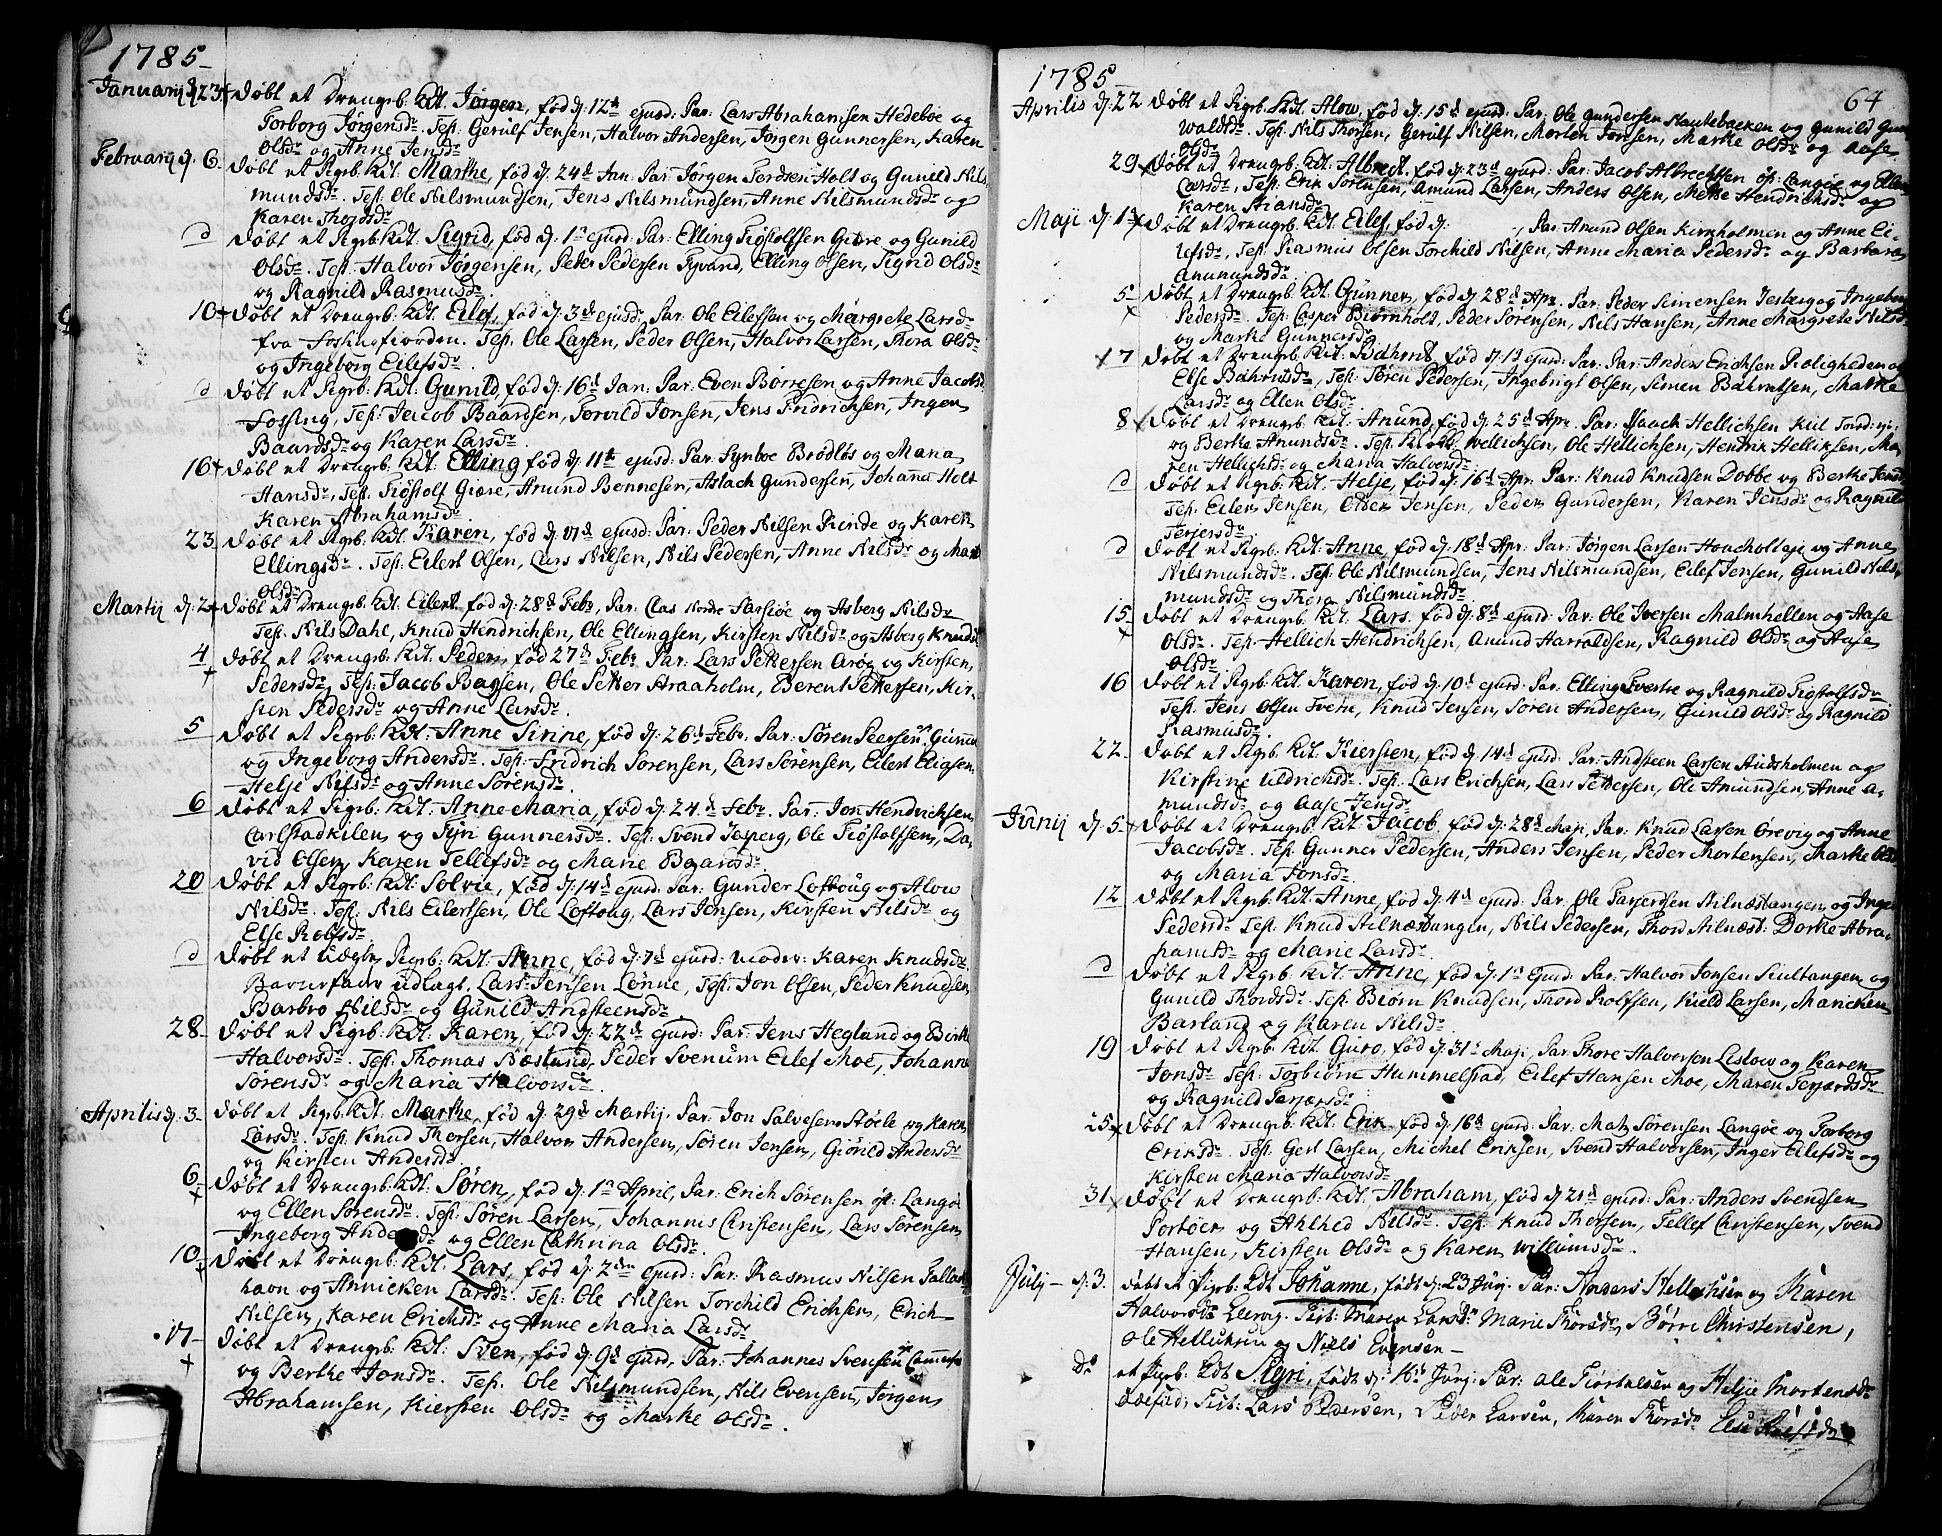 1785
Januarij d: 23 Døbt et Drengeb: kdt: Jørgen, fød d: 12te ejusd: Par: Lars Abrahamsen Hedeboe og
Torborg Jørgensdr. Test: Gerulf Jensen, Halvor Andersen, Jørgen Gunnersen, Karen
Olsdr og Anne Jensdr
Februarij d: 6 Døbt et Pigeb: kdt: Marthe, fød d: 24d Jan: Par: Jørgen Holt og Gunild Nils
mundsdr. Test: Ole Nilsmundsen, Jens Nilsmundsen, Anne Nilsmundsdr og
Karen
d Døbt et Pigeb: kdt: Sigrid, fød d: 1n ejusd: Par: Elling Fiøstolfsen Giøre og Gunild
Olsdr. Test: Halvor Jørgensen, Peter Pedersen Elling Olsen, Sigrid Olsdr
og Ragnild Rasmusdr
10 Døbt et Drengeb: kdt: Eilef, fød d: 3de ejusd: Par: Ole Eilefsen og Margrethe Larsdr
fra Test: Ole Larsen, Peder Olsen, Halvor Larsen, Thora Olsdr
og Ingeborg Eilefsdr
d Døbt et Pigeb: kdt: Gunild, fød d: 16d Jan: Par: Even Børresen og Anne Jacobsd
Fossing, Test: Jacob Baardsen, Torvild Jonsen, Jens Fridrichsen, Inger
Baardsdr og Karen Larsdr.
16 Døbt et Drengeb: kdt: Elling fød d: 11te ejusd: Par: Synboe Brødløs og Maria
Hansdr, Test: Fiøstolf Giøre, Amund Bennesen, Aslach Gundersen, Johanne Holt
Karen Abrahamsdr
23 Døbt et Pigeb: kdt: Karen, fød d: 17d ejusd: Par: Peder Nilsen Rinde og Karen
Ellingsdr. Test: Eilert Olsen, Lars Nilsen, Nils Pedersen, Anne Nilsdr og
Olsdr
Martij d: 2 Døbt et Drengeb: kdt: Eilert fød d: 28d Febr, Par: Clas og Asberg Nilsdr
Test: Nils Dahl, Knud Hendrichsen, Ole Ellingsen, Kirsten Nilsdr og Asberg Knudsdr
4 Døbt et Drengeb: kdt: Peder, fød 27de Febr Par: Lars Pettersen Arøe og Kirsten
Pedersdr, Test: Jacob Ole Petter Araaholm, Berent Pettersen, Kir-
sten Pedersdr og Anne Larsdr.
5 Døbt et Pigeb: kdt: Anne Sinne, fød d: 26d Febr. Par: Søren Peersen,
og Ingeborg Andersdr. Test: Fridrich Sørensen, Lars Sørensen, Eilert
Helje Nilsdr og Anne Sørensdr.
6 Døbt et Pigeb: kdt: Anne Maria, fød d: 24d Febr. Par: Jon Hendrichsen
Carlstadkilen og Gunnersdr. Test: Svend Jesperg, Ole Fiøstolfsen, Da-
vid Olsen, Karen Tellefsdr og Marie Baarsdr
20 Døbt et Pigeb: kdt: Solvie, fød d: 14d ejusd: Par: Gunder Loftoug og Alow
Nilsdr. Test: Nils Eilertsen, Ole Loftoug, Lars Jensen, Kirsten Nilsdr og
Else Rolfsdr
d Døbt et Uægte Pigeb: kdt: Anne, fød d: 7d ejusd: Moder: Karen Knudsdr
Barnefader udlagt Lars Jensen Lønne, Test: Jon Olsen, Peder Knudsen
Barbro Nilsdr og Gunild Andsteensdr
28 Døbt et Pigeb: kdt: Karen, fød d: 22d ejusd: Par: Jens Hegland og
Halvorsdr. Test: Thomas Næslund, Peder Svenum Eilef Moe, Johanne
Sørensdr og Maria Halvorsdr.
Aprilis d: 3 Døbt et Pigeb: kdt: Marthe, fød d: 29d Martij, Par: Jon Salvesen Støele og Karen
Larsdr. Test: Knud Thorsen, Halvor Andersen, Søren Jensen, Giørild Andersdr
og Kirsten Andersdr
6 Døbt et Drengeb: kdt: Søren, fød d: 1n April, Par: Erich Sørensen øst: Langøe
og Ellen Sørensdr. Test: Søren Larsen, Johannis Christensen, Lars Sørensen,
Ingeborg Andersdr og Ellen Cathrina Olsdr.
10 Døbt et Drengeb: kdt: Lars, fød d: 2den ejusd: Par: Rasmus Nilsen
havn og Annicken Larsdr. Test: Ole Nilsen Torchild Erichsen, Erich
Nilsen, Karen Erichsdr og Anne Maria Larsdr
17 Døbt et Drengeb: kdt: Sven, fød d: 9d ejusd, Par: Johannes Svensen
og Berthe Jonsdr. Test: Ole Nilsmundsen, Nils Evensen, Jørgen
Abrahamsen, Kiersten Olsdr og Marthe Olsdr.
1785
64
Aprilis d: 22 Døbt et Pigeb: kdt: Alow, fød d: 15d ejusd: Par: Ole Gundersen Nautebacken og Gunild Gun
waldsdr. Test: Nils Thorsen, Gerulf Nilsen, Morten Jensen, Marthe Olsdr og Aase
Olsdr
29 Døbt et Drengeb: kdt: Albrect, fød d: 23d ejusd: Par: Jacob Albrechtsen øst: Langøe og Ellen
Larsdr, Test: Erik Sørensen, Amund Larsen, Anders Olsen, Mette Hendrichsdr og
Karen
Maji d: 1 Døbt et Drengeb: kdt: Eilef, fød d: , Par: Anund Olsen Kirkholmen og Anne Ei-
lefsdr, Test: Rasmus Olsen Torchild Nilsen, Anne Maria Pedersdr og Barbara
Anumundsdr
5 Døbt et Drengeb: kdt: Gunner, fød d: 28d Apr. Par: Peder Simensen Jesberg og Ingeborg
Pedersdr. Test: Casper Biørnholt, Peder Sørensen, Nils Hansen, Anne Margrete Nilsd
og Marthe Gunnersdr
7 Døbt et Drengeb: kdt: fød d: 1d ejusd: Par: Anders Erichsen Roligheden og
Else Test: Søren Pedersen, Ingebrigt Olsen, Simen Marthe
Larsdr og Ellen Olsdr
8 Døbt et Drengeb: kdt: Anund, fød d: 25d Apr. Par: Isaach Hellichsen Kiil
og Berthe Anundsdr. Test: Ole Hellichsen, Hendrik Helliksen, Ma-
ren Hellichsdr og Maria Halvorsdr
d Døbt et Pigeb: kdt: Helje, fød d: 16d Apr. Par: Knud Knudsen Dobbe og Berthe Jensd
Test: Eiler Jensen, Jensen, Peder Gundersen, Karen Jensdr og Ragnild
Terjersdr
d Døbt et Pigeb: kdt: Anne, fød d: 18d Apr. Par: Jørgen Larsen og Anne
Nilsmundsdr. Test: Ole Nilsmundsen, Jens Nilsmundsen, Eilef Jensen, Gunild Nils-
mundsdr og Thora Nilsmundsdr.
15 Døbt et Drengeb: kdt: Lars, fød d: 8d ejusd: Par: Ole Iversen Malmhellen og Aase
Olsdr. Test: Hellich Hendrichsen, Amund Harraldsen, Ragnild Olsdr og Aase
Olsdr
16 Døbt et Pigeb: kdt: Karen, fød d: 10d ejusd: Par: Elling Tvertre og Ragnild Fiøstolfsdr
Test: Jens Olsen Knud Jensen, Søren Andersen, Gunild Olsdr og Ragnild
Rasmusdr
22 Døbt et Pigeb: kdt: Kiersten, fød d: 14d ejusd: Par: Andsteen Larsen og
Kirstine Uldrichsdr. Test: Lars Erichsen, Lars Pettersen, Ole Amundsen, Anne A-
mundsdr og Aase Jensdr
Junij d: 5 Døbt et Drengeb: kdt: Jacob fød d: 28d Maji, Par: Knud Larsen Orevig og Anne
Jacobsdr. Test: Gunner Pedersen, Anders Jensen, Peder Mortensen, Marthe
og Maria Jonsdr.
12 Døbt et Pigeb: kdt: Anne, fød d: 4d ejusd: Par: Ole Tarjerdsen Milnæstangen og Inger
Pedersdr Test: Knud Milnæstangen, Nils Pedersen, Thord Milnæst: Dorthe Abra-
hamsdr og Marie Larsdr.
d Døbt et Pigeb: kdt: Anne, fød d: 1n ejusd: Par: Halvor Jonsen og
Gunild Thordsdr. Test: Biørn Knudsen, Thord Rolfsen, Kield Larsen, Mancken
Barland og Karen Nilsdr.
19 Døbt et Pigeb: kdt: Guro, fød d: 31t Maji, Par: Thore Halvorsen Listow og Karen
Jonsdr Test: Torbiørn Hummelstad, Eilef Hansen Moe, Maren Terjærdsdr
og Ragnild Tarjærsdr
25 Døbt et Drengeb: kdt: Erik, fød d: 16d ejusd: Par: Mats Sørensen Langøe og Torborg
Eriksdr. Test: Gert Larsen, Michel Eriksen, Svend Halvorsen, Inger Eilefsdr og
Kirsten Maria Halvorsdr
31 Døbt et Drengeb: kdt: Abraham, fød d: 21d ejusd: Par: Anders Svendsen
og Ahlhed Nilsdr. Test: Knud Thorsen, Tellef Christensen, Svend
Hansen, Kirsten Olsdr og Karen Willumsdr.
Julij d: 3. døbt et Pigeb: kdt Johanne, født d: 23 Junj: Par: Anders Hellechsen og Karen
Halvorsdr Test: Maren Larsdr Marie Thorsdr, Børre Christensen,
Ole Hellichsen og Niels Evensen
Do et Pigeb: kdt Sigri, født d: 16d Junj: Par: Ole Fiørtulsen og Helje Mortensdr
Test: Lars Pedersen, Peder Larsen, Karen Thorsdr Else